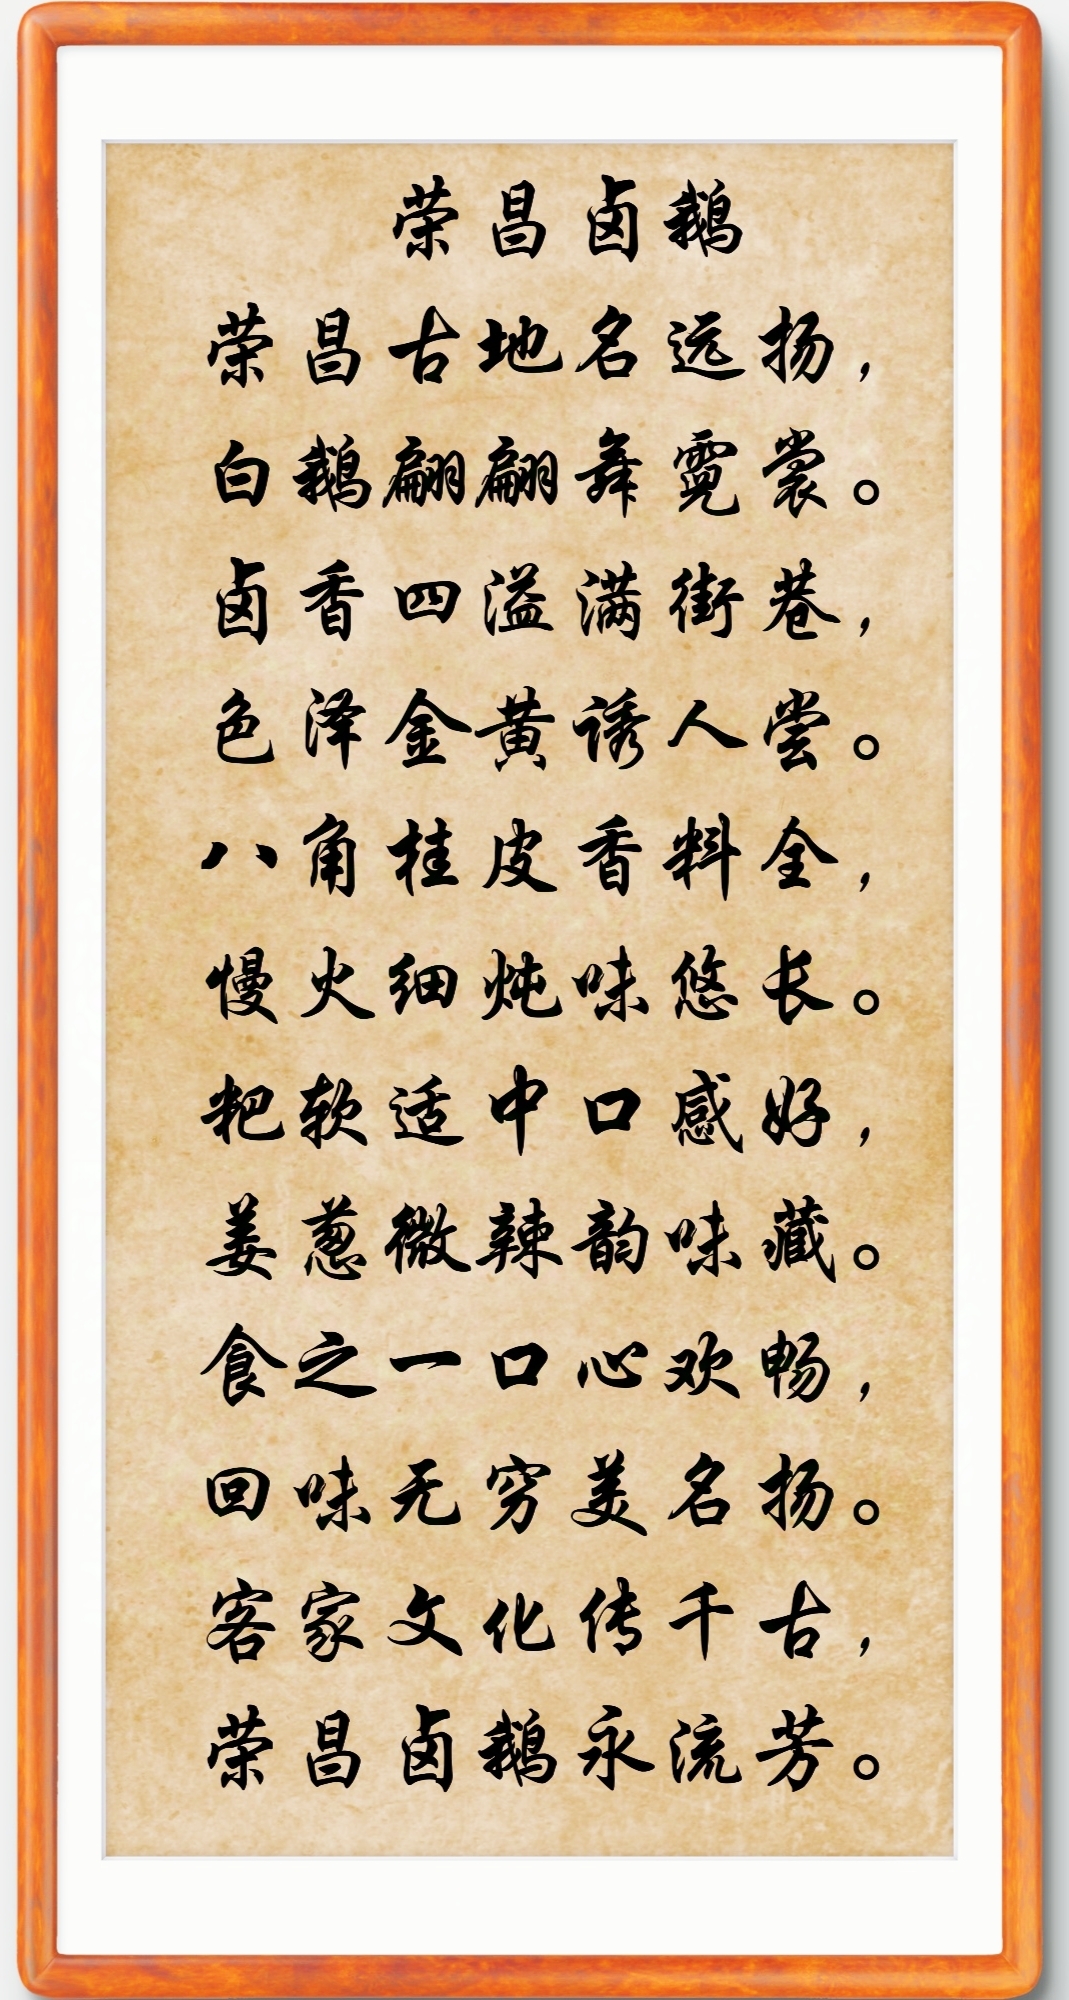 荣昌卤鹅
荣昌古地名远扬，
白鹅翩翩舞霓裳。
卤香四溢满街巷，
色泽金黄诱人尝。
八角桂皮香料全，
慢火细炖味悠长。
粑软适中口感好，
姜葱微辣韵味藏。
食之一口心欢畅，
回味无穷美名扬。
客家文化传千古，
荣昌卤鹅永流芳。